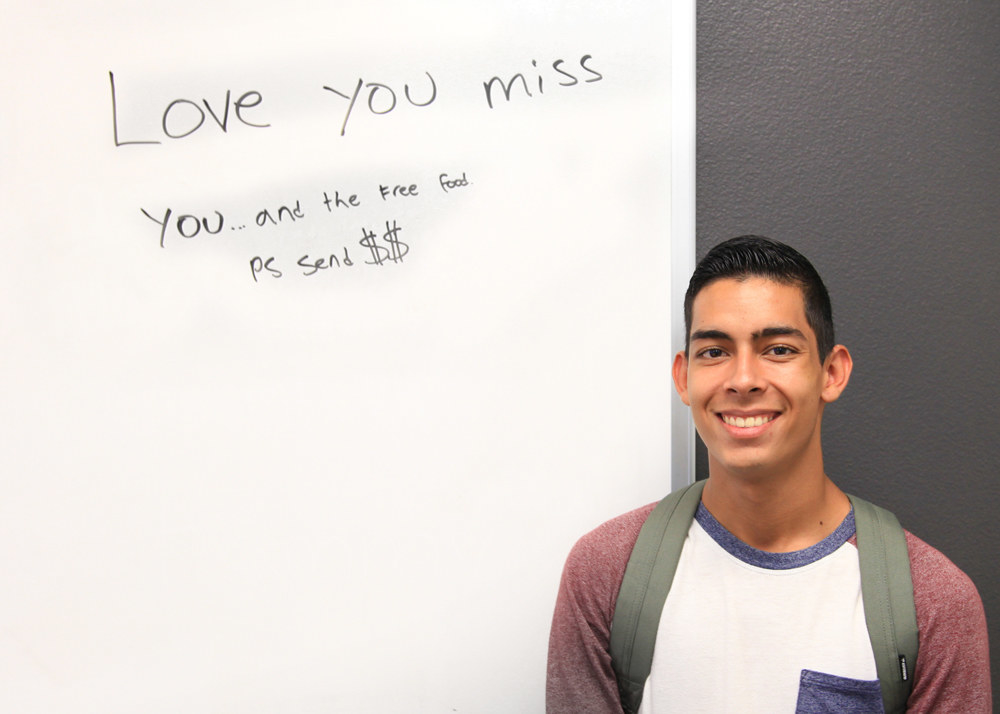 Love you miss
you... and the Free food.
ps send $$